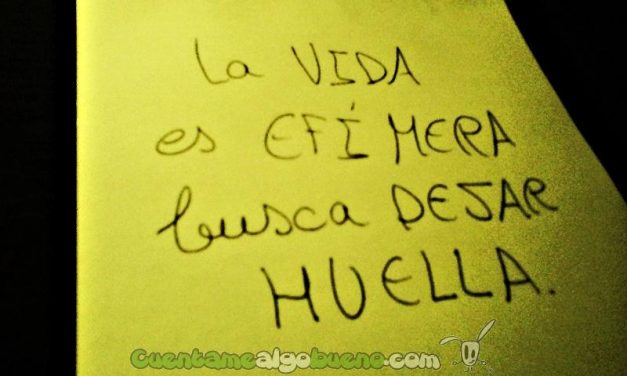 La VIDA
es EFÍMERA
busca DEJAR
HUELLA.
Cuentamealgobueno.com